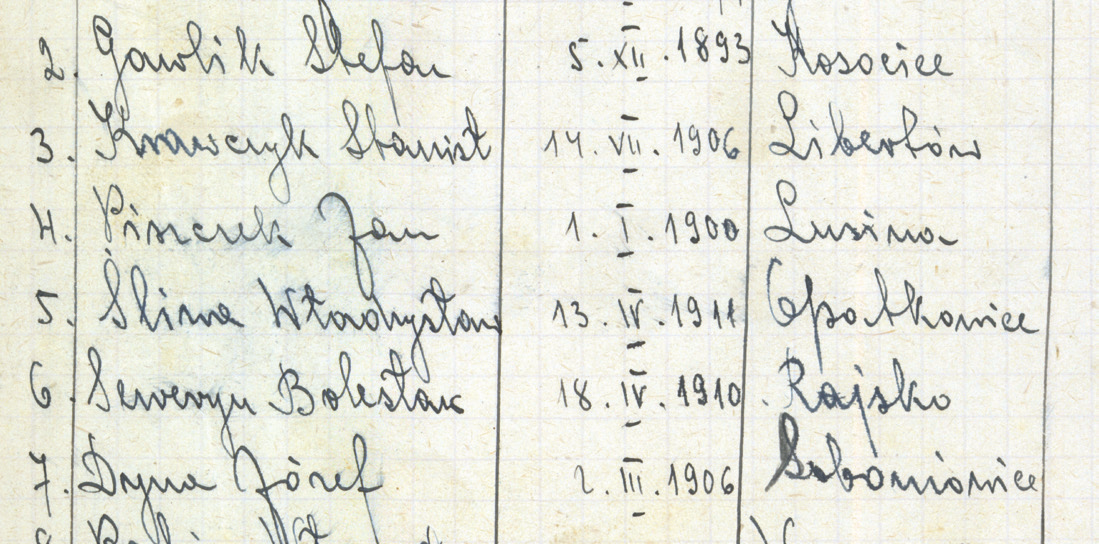 2. Gawlik Stefan 5. XII. 1893 Kosocice
3. Krawczyk Stanisł 14. VII. 1906 Libertów
4. Piszczek Jan 1. I. 1900 Lusina
5. Śliwa Władysław 13. IV. 1911 Opatkowice
6 Seweryn Bolesław 18. IV. 1910 Rajsko
7. Dyna Józef 2. III. 1906 Soboniowice